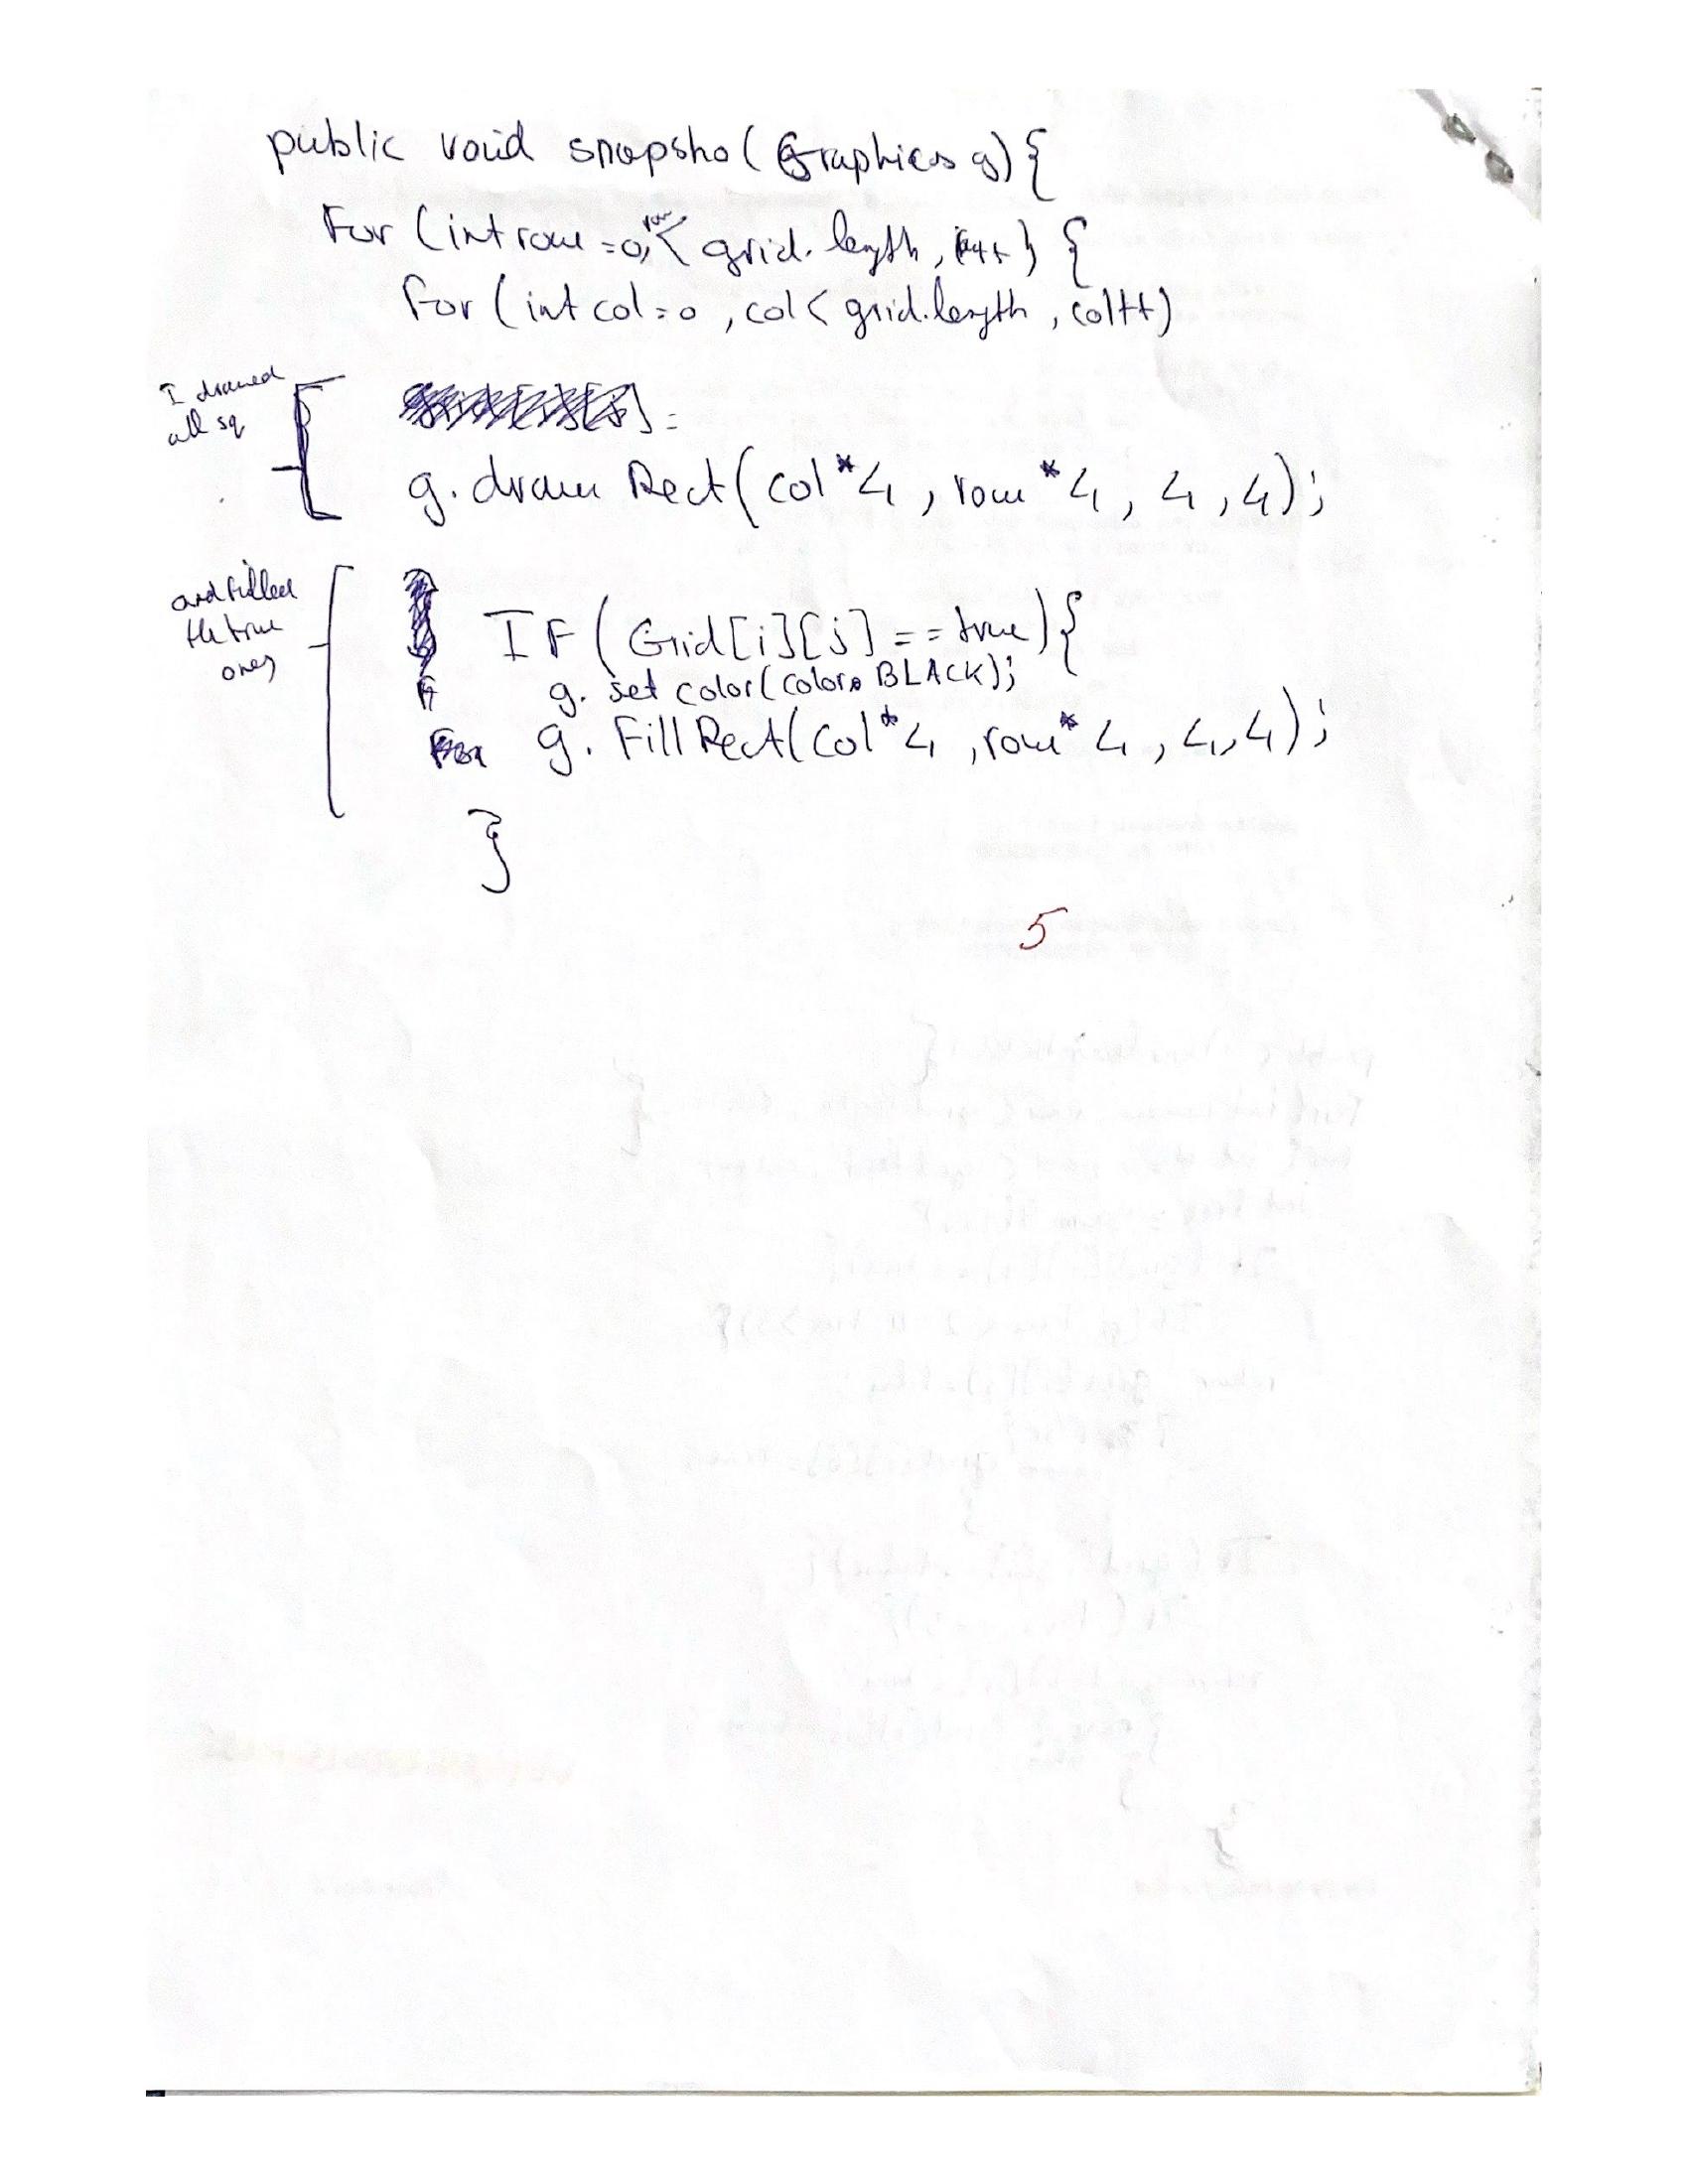 public void snapsho(Graphics g){
For (int row =0, row < grid.length, i++) {
For (int col=0 , col < grid.length , col++)
I drawed
all sq
g.draw Rect(col*4 , row*4 , 4 , 4);
and filled
the true
ones
IF (Grid[i][j] == true){
g. set color(color. BLACK);
g. Fill Rect(col*4 , row*4 , 4, 4);
}
5